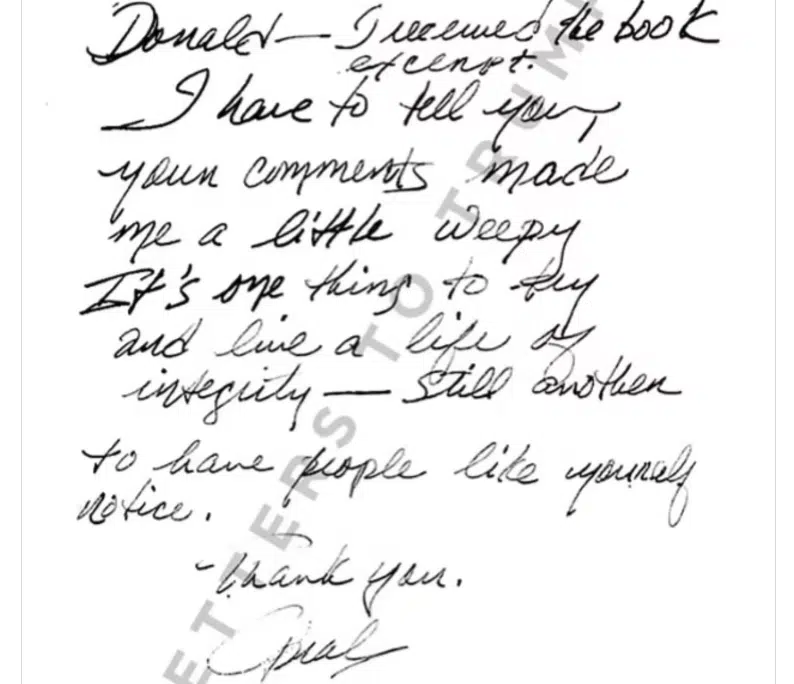 Donald— I received the book
excerpt.
— I have to tell you,
your comments made
me a little weepy
It's one thing to try
and live a life of
integrity — still another
to have people like yourself
notice.
-Thank you.
Oprah
ETTERS TO TRUM